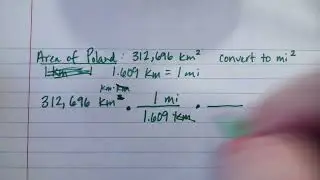 Area of Poland: 312,696 km² convert to mi²
1 km 1.609 km = 1 mi
km·km
312,696 km² · 1 mi / 1.609 km ·